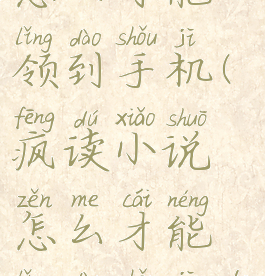 lǐng dào shǒu jī
领到手机(
fēng dú xiǎo shuō
疯读小说
zěn me cái néng
怎么才能